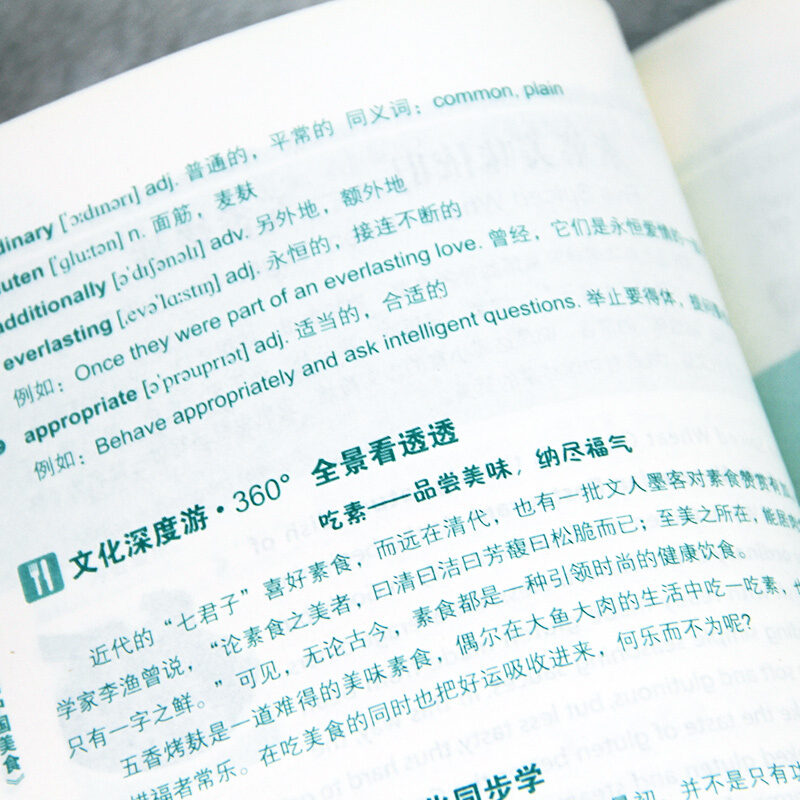 dinary [ˈɔːdɪnərɪ] adj. 普通的，平常的 同义词：common, plain
luten [ˈɡluːtən] n. 面筋，麦麸
additionally [əˈdɪʃənəlɪ] adv. 另外地，额外地
everlasting [ˌevəˈlɑːstɪŋ] adj. 永恒的，接连不断的
例如：Once they were part of an everlasting love. 曾经，它们是永恒爱情的一
appropriate [əˈprəʊprɪət] adj. 适当的，合适的
例如：Behave appropriately and ask intelligent questions. 举止要得体，提问
文化深度游·360° 全景看透透
吃素——品尝美味，纳尽福气
近代的“七君子”喜好素食，而远在清代，也有一批文人墨客对素食赞赏有加
学家李渔曾说，“论素食之美者，曰清曰洁曰芳馥曰松脆而已；至美之所在，能居
只有一字之鲜。”可见，无论古今，素食都是一种引领时尚的健康饮食。
五香烤麸是一道难得的美味素食，偶尔在大鱼大肉的生活中吃一吃素，也
惜福者常乐。在吃美食的同时也把好运吸收进来，何乐而不为呢？
同步学
最初，并不是只有
国美食》